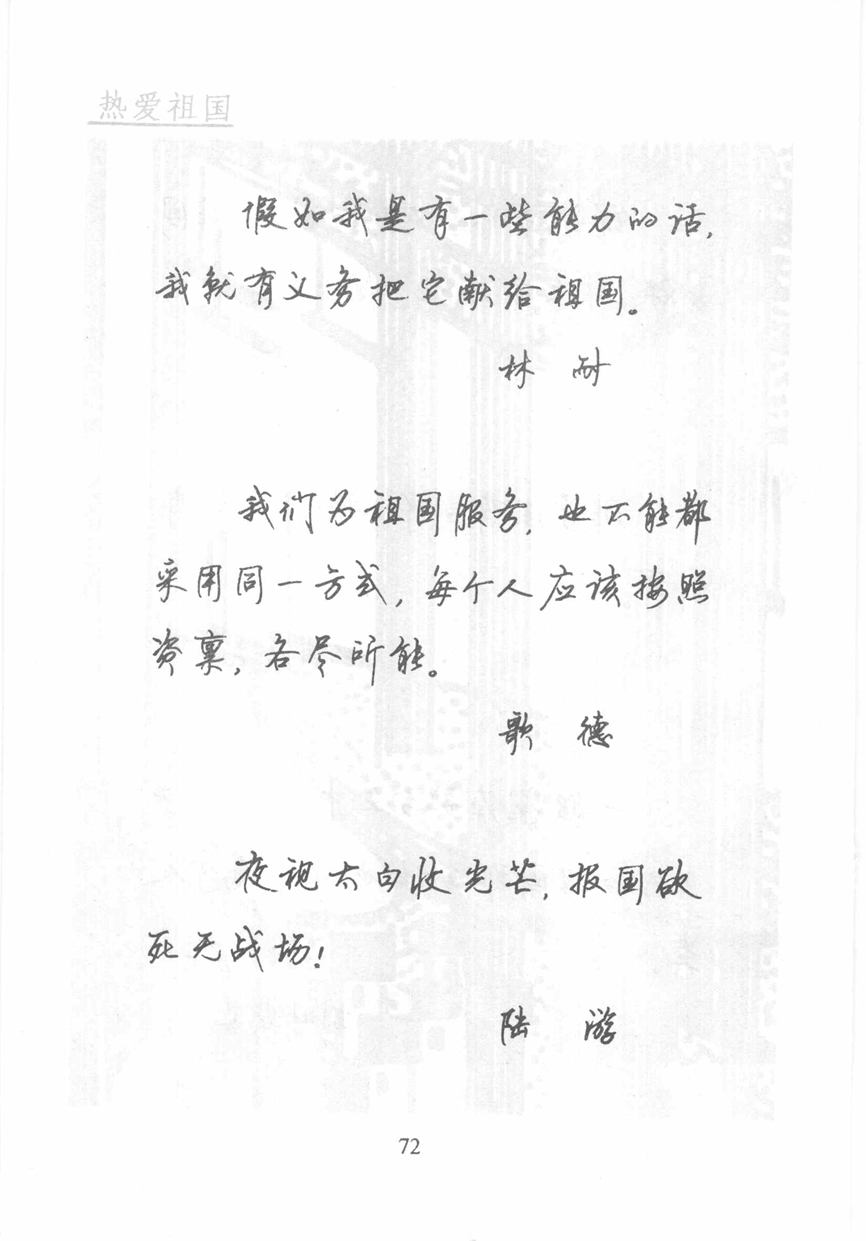 热爱祖国
假如我是有一些能力的话，
我就有义务把它献给祖国。
林 耐
我们为祖国服务，也不能都
采用同一方式，每个人应该按照
资禀，各尽所能。
歌 德
夜视太白收光芒，报国欲
死无战场！
陆 游
72